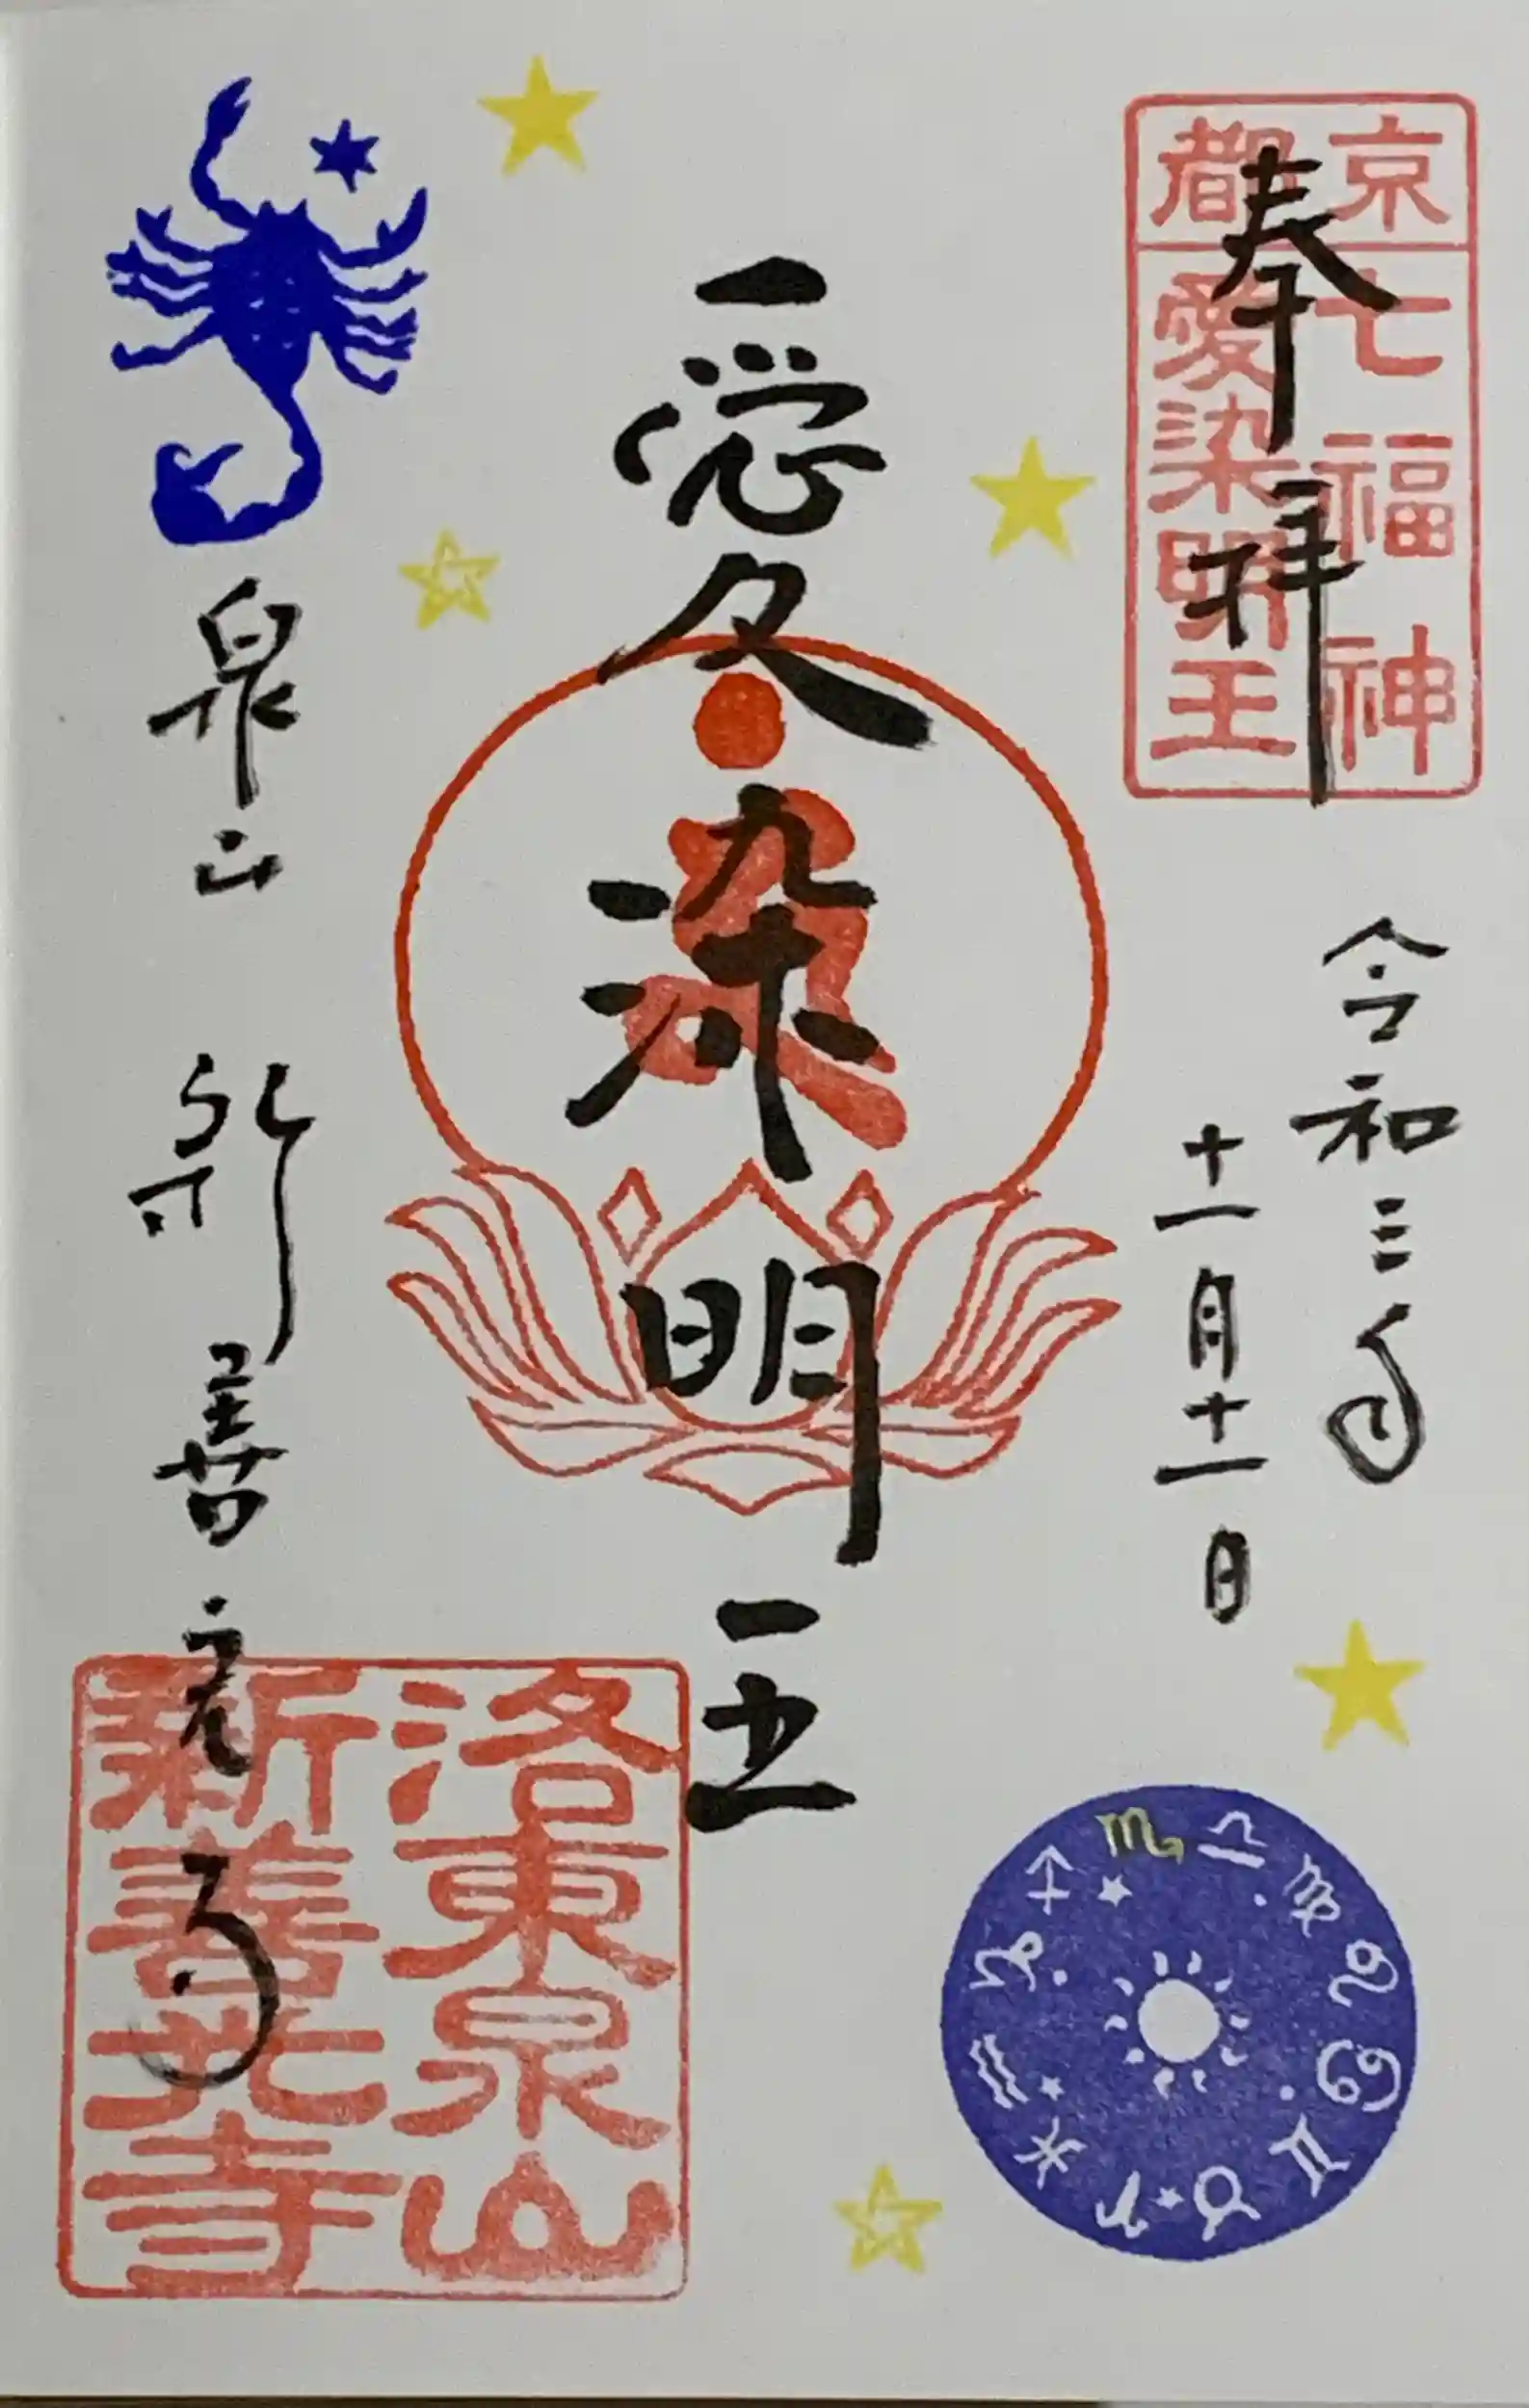 京都
七福神
愛染明王
奉拝
令和三年
十一月十一日
愛染明王
泉山 新善光寺
洛東泉山
新善光寺
♏ ♎ ♍ ♌ ♋ ♊ ♉ ♈ ♓ ♒ ♑ ♐